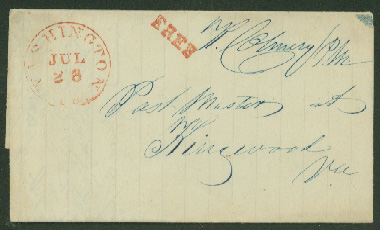 WASHINGTON
JUL
28
FREE
Post Master at
Kingwood
Va